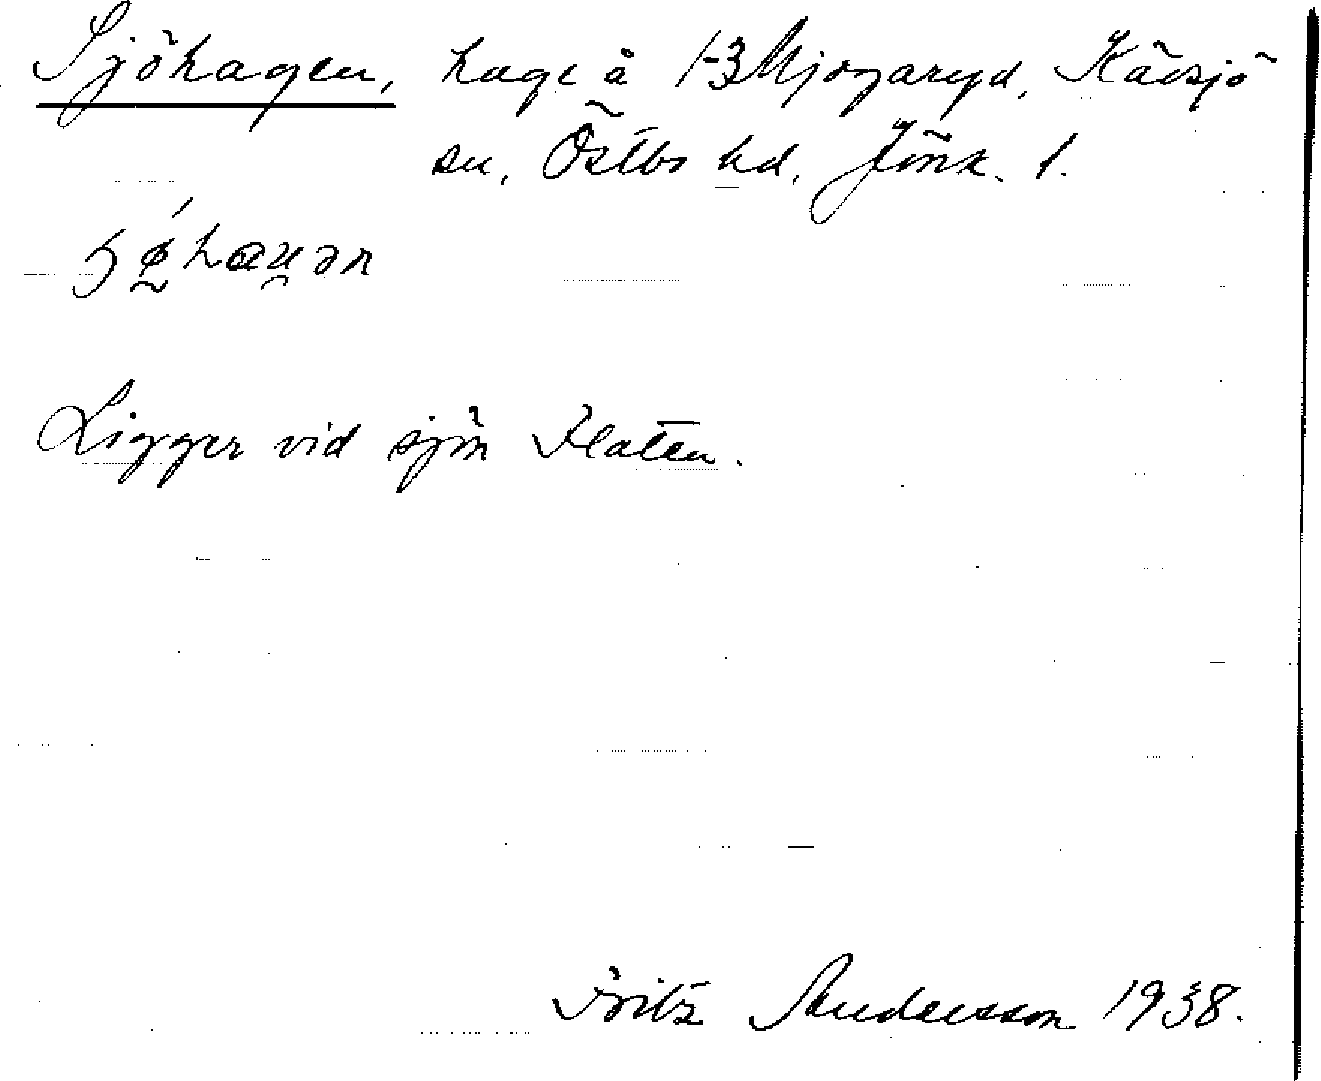 Sjöhagen, hage å 1-3 Mjogaryd, Kävsjö
sn, Östbo hd, Jönk. l.
Ligger vid sjön Flaten.
Fritz Andersson 1938.